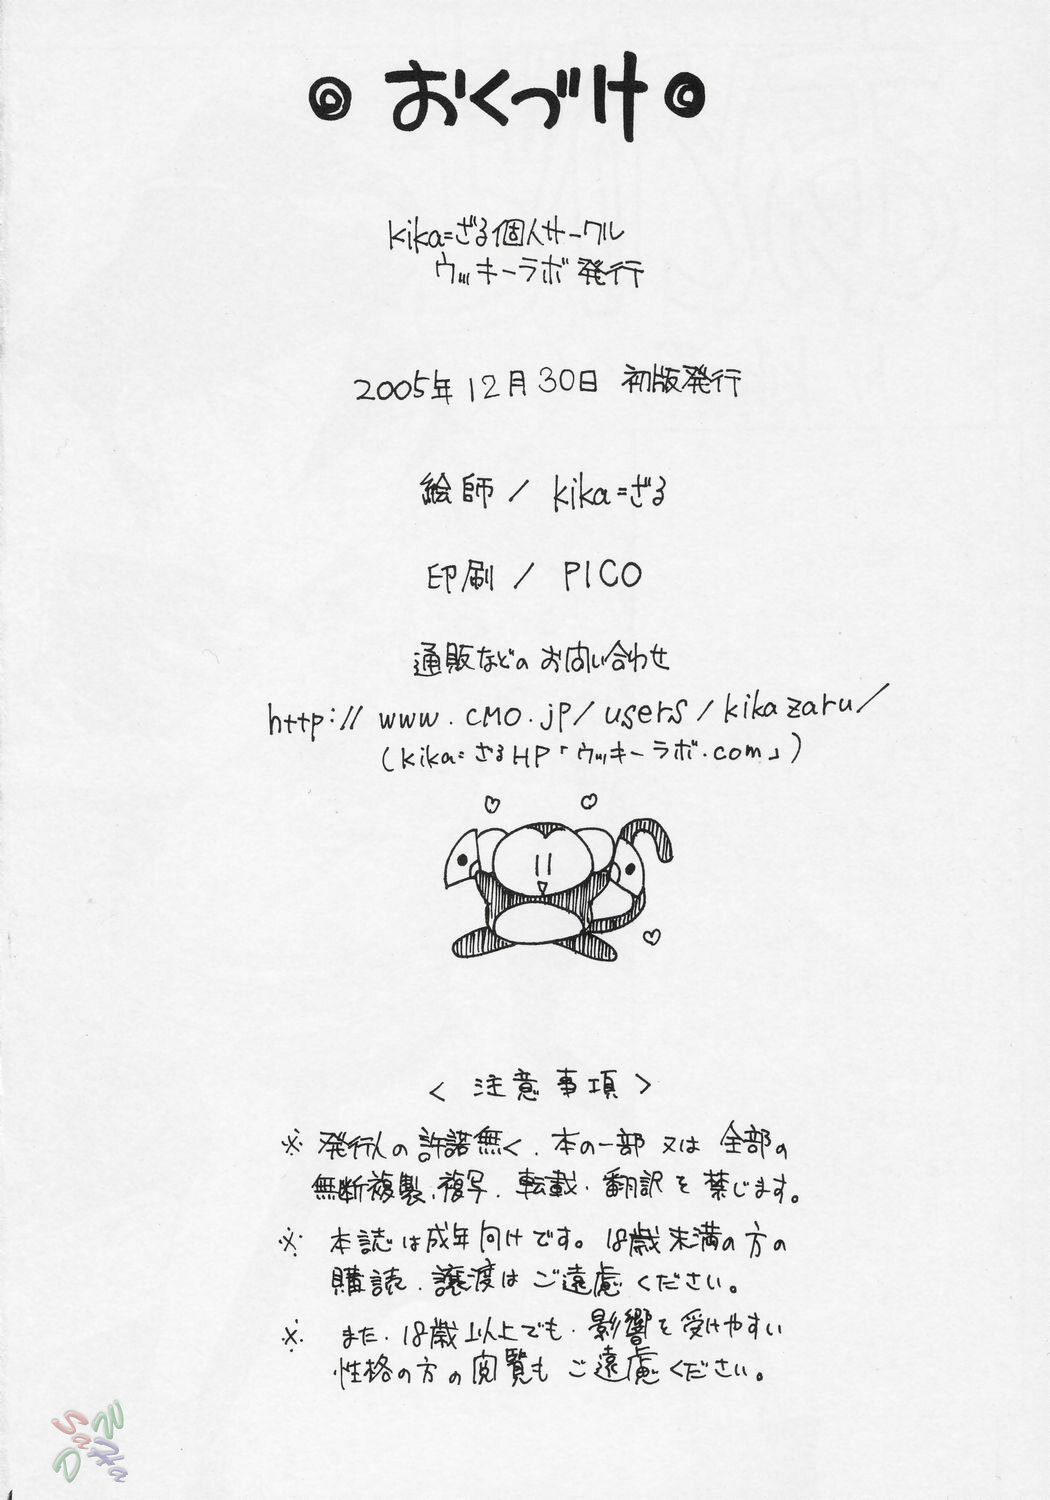 ◎ おくづけ ◎
kika=ざる個人サークル
ウッキーラボ発行
2005年12月30日 初版発行
絵師 / kika=ざる
印刷 / PICO
通販などの お問い合わせ
http://www.cmo.jp/users/kikazaru/
(kika=ざるHP「ウッキーラボ.com」)
< 注意事項 >
※ 発行人の許諾無く、本の一部 又は 全部の
無断複製、複写、転載、翻訳を禁じます。
※ 本誌は成年向けです。18歳未満の方の
購読、譲渡はご遠慮ください。
※ また、18歳以上でも、影響を受けやすい
性格の方の閲覧もご遠慮ください。